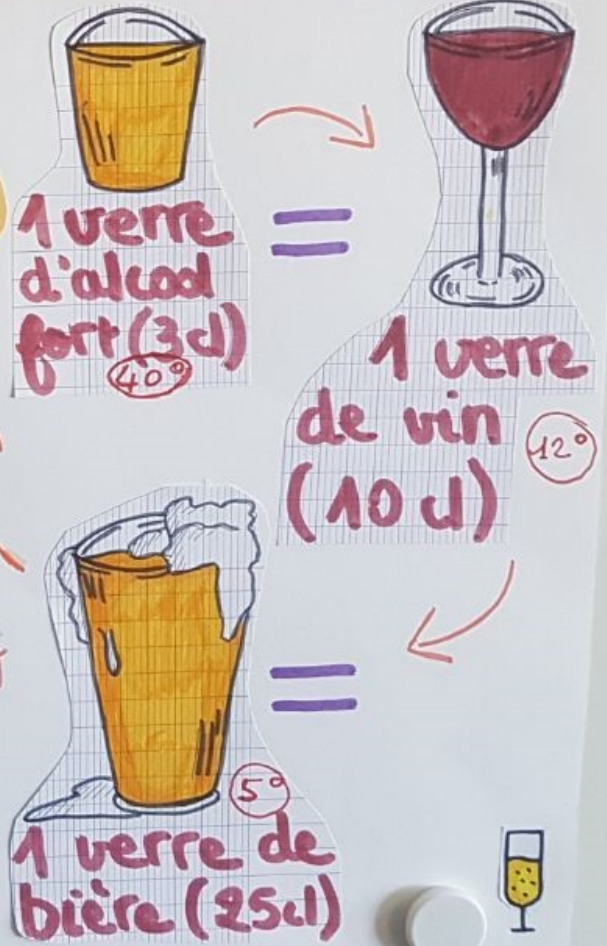 1 verre
d'alcool
fort (3cl)
40°
=
1 verre
de vin
(10 cl)
12°
=
5°
1 verre de
bière (25cl)